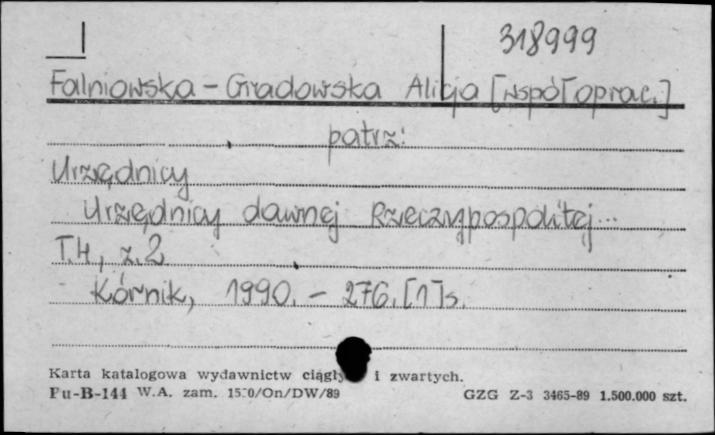 318999
Falniowska-Gradowska Alicja [współoprac.]
patrz:
Urzędnicy
Urzędnicy dawnej Rzeczypospolitej...
T.4, z.2
Kórnik, 1990. - 276, [1] s.
Karta katalogowa wydawnictw i zwartych.
Pu-B-144 W.A. zam. /On/DW/89 GZG Z-3 3465-89 1.500.000 szt.